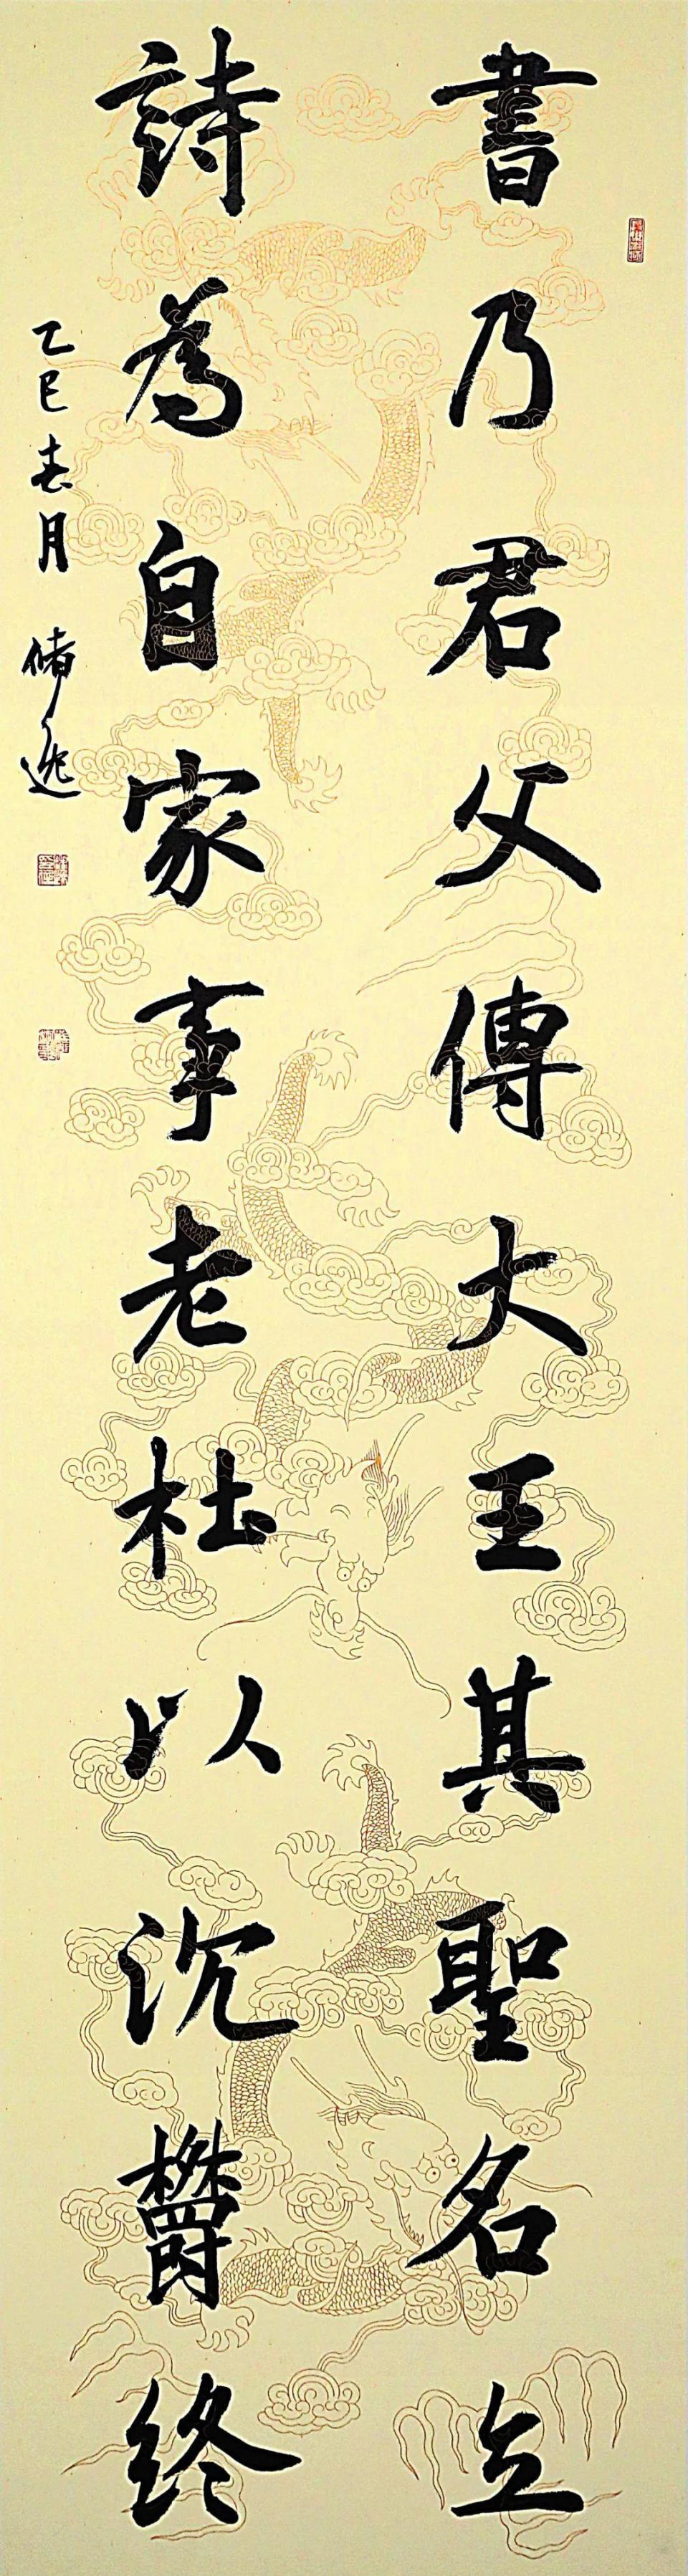 書乃君父傳大王其聖名立
詩為自家事老杜以沉欝終
乙巳春月 储逸